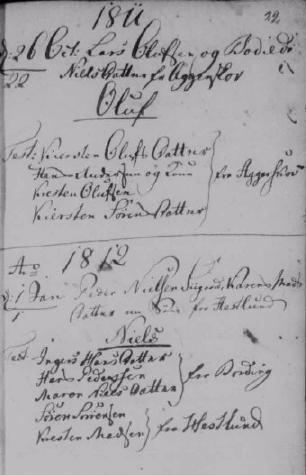 1811
22
d: 26 Oct: Lars Olufsen og Bodild
22 Niels Datter fra Aggerskov
Oluf
Test: Kiersten Olufs Datter
Hans Andersen og
Kresten Olufsen
Kiersten Sörens Datter
fra Aggerskov
Ao 1812
d: 1 Jan Peder Nielsen Karen Mads
1 Datter fra Hestlund
Niels
Test Ingers Hans Datter
Hans Pedersen
Maren Niels Datter
fra Bording
Sören Sörensen
Kresten Madsen
fra Hestlund